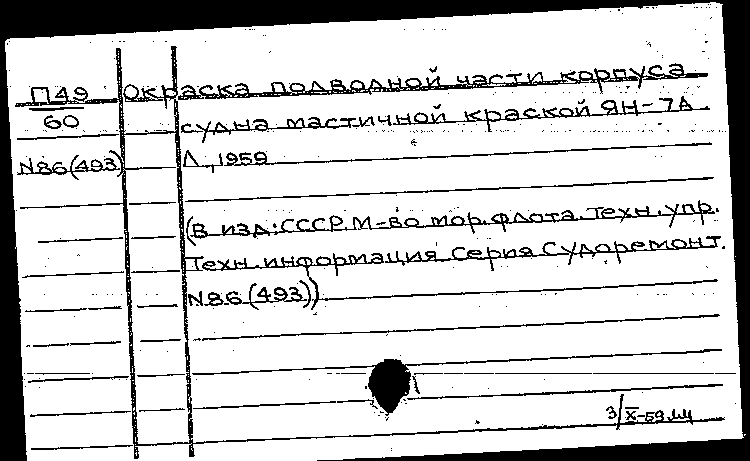 П49 Окраска подводной части корпуса
60 судна мастичной краской ЯН-7А
N86(493) Л., 1959
(В изд: СССР. М-во мор. флота. Техн. упр.
Техн. информация Серия Судоремонт.
N86(493))
3/X-59